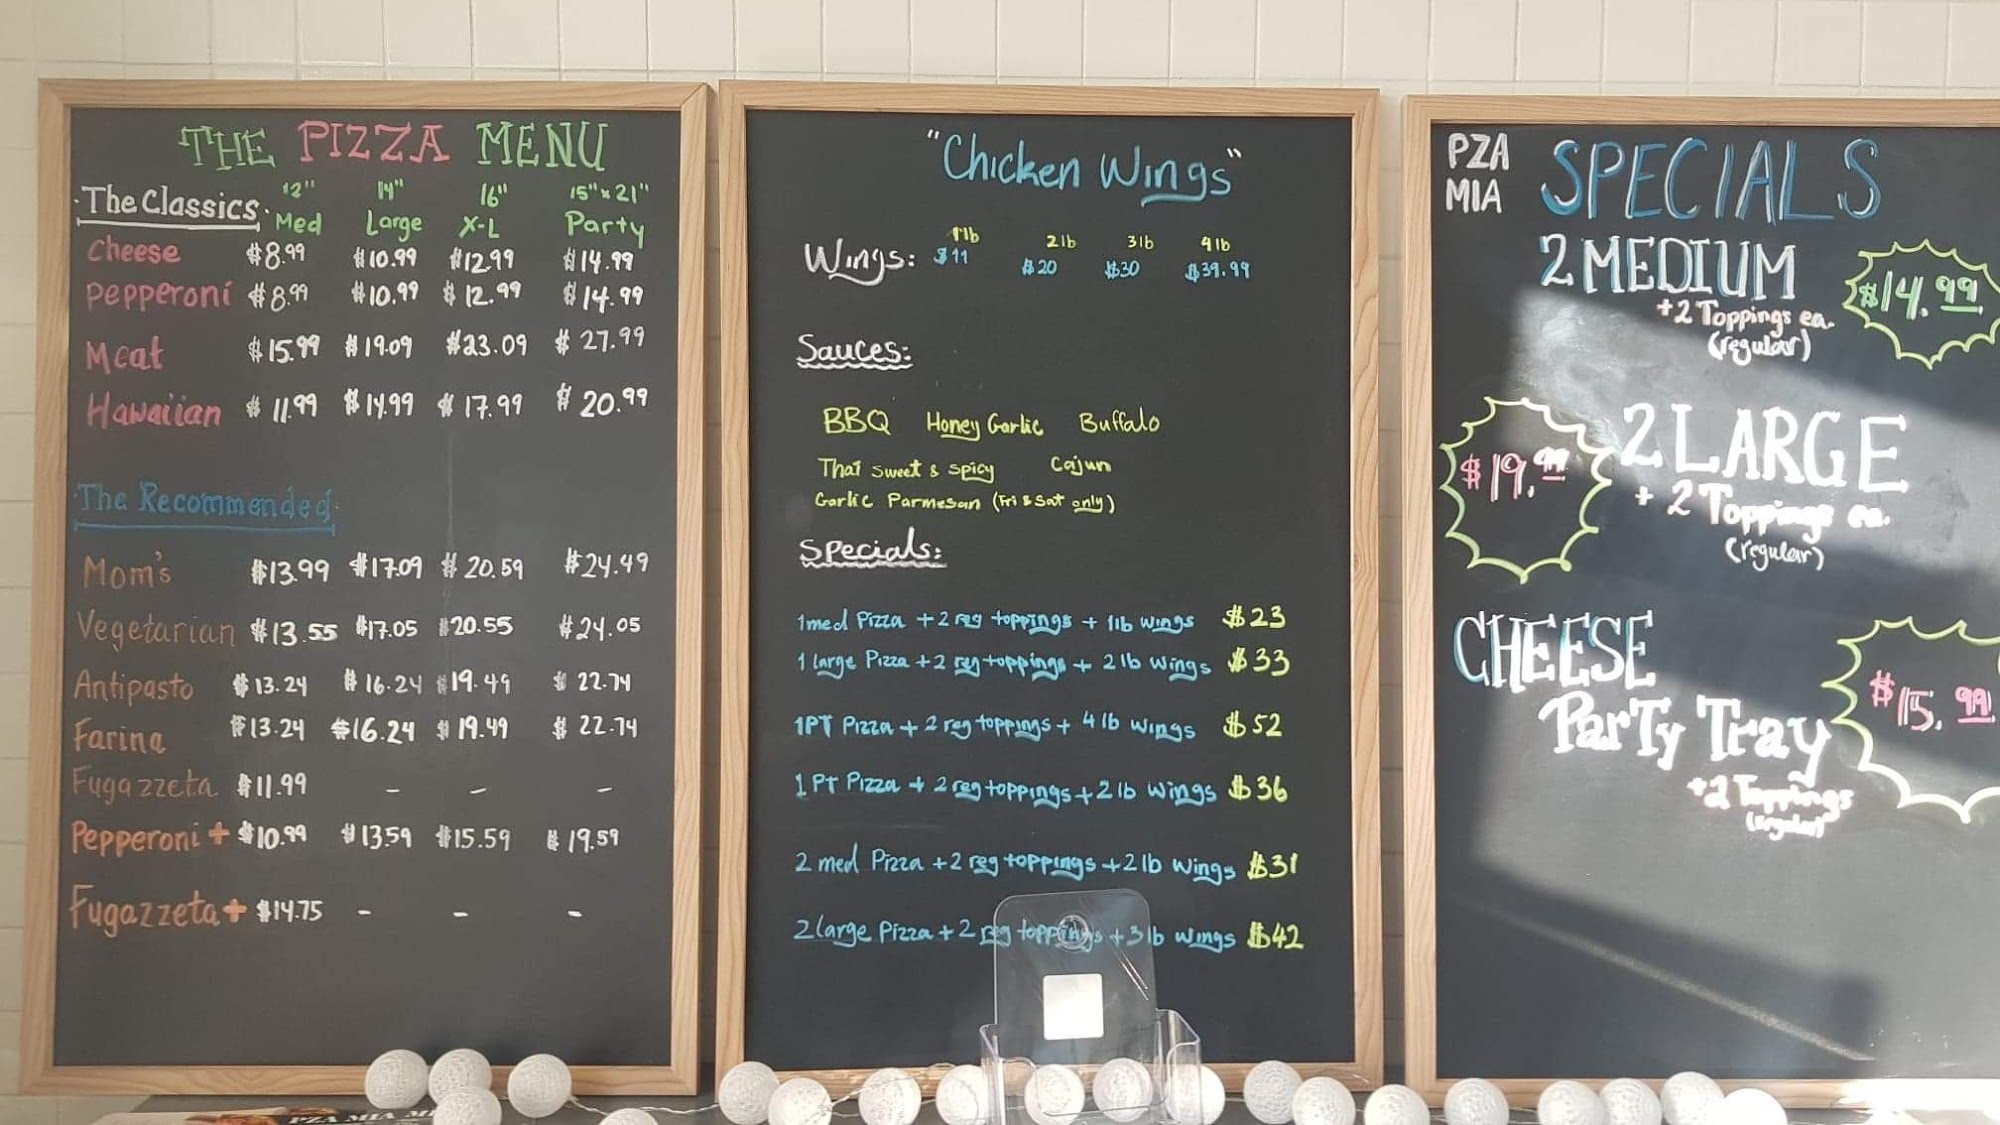 THE PIZZA MENU
The Classics 12" Med 14" Large 16" X-L 15"x21" Party
Cheese $8.99 $10.99 $12.99 $14.99
Pepperoni $8.99 $10.99 $12.99 $14.99
Meat $15.99 $19.09 $23.09 $27.99
Hawaiian $11.99 $14.99 $17.99 $20.99
The Recommended
Mom's $13.99 $17.09 $20.59 $24.49
Vegetarian $13.55 $17.05 $20.55 $24.05
Antipasto $13.24 $16.24 $19.49 $22.74
Farina $13.24 $16.24 $19.49 $22.74
Fugazzeta $11.99 - - -
Pepperoni + $10.99 $13.59 $15.59 $19.59
Fugazzeta + $14.75 - - -
"Chicken Wings"
1lb 2lb 3lb 4lb
Wings: $11 $20 $30 $39.99
Sauces:
BBQ Honey Garlic Buffalo
Thai sweet & spicy Cajun
Garlic Parmesan (Fri & Sat only)
Specials:
1 med Pizza + 2 reg toppings + 1lb wings $23
1 large Pizza + 2 reg toppings + 2 lb wings $33
1PT Pizza + 2 reg toppings + 4 lb wings $52
1 PT Pizza + 2 reg toppings + 2 lb wings $36
2 med Pizza + 2 reg toppings + 2 lb wings $31
2 large Pizza + 2 reg toppings + 3 lb wings $42
PZA MIA SPECIALS
2 MEDIUM $14.99
+2 Toppings ea.
(regular)
$19.99 2 LARGE
+ 2 Toppings ea.
(regular)
CHEESE
Party Tray $15.99
+2 Toppings
(regular)
PZA MIA